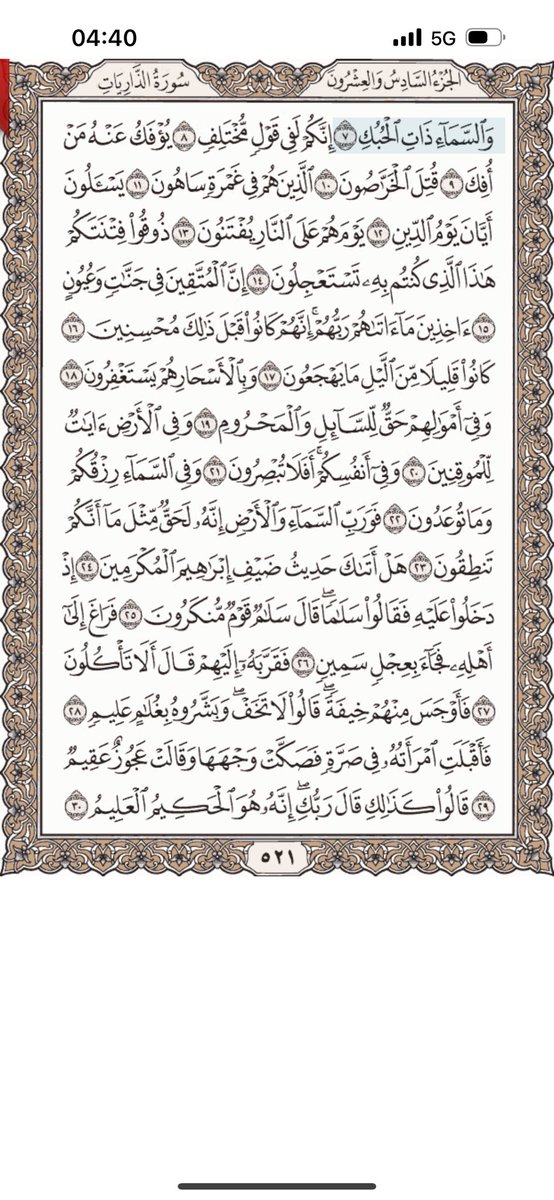 04:40 5G
سُورَةُ الذَّارِيَاتِ الجُزْءُ السَّادِسُ وَالعِشْرُونَ
وَٱلسَّمَآءِ ذَاتِ ٱلْحُبُكِ ٧ إِنَّكُمْ لَفِى قَوْلٍ مُّخْتَلِفٍ ٨ يُؤْفَكُ عَنْهُ مَنْ
أُفِكَ ٩ قُتِلَ ٱلْخَرَّٰصُونَ ١٠ ٱلَّذِينَ هُمْ فِى غَمْرَةٍ سَاهُونَ ١١ يَسْـَٔلُونَ
أَيَّانَ يَوْمُ ٱلدِّينِ ١٢ يَوْمَ هُمْ عَلَى ٱلنَّارِ يُفْتَنُونَ ١٣ ذُوقُوا۟ فِتْنَتَكُمْ
هَٰذَا ٱلَّذِى كُنتُم بِهِۦ تَسْتَعْجِلُونَ ١٤ إِنَّ ٱلْمُتَّقِينَ فِى جَنَّٰتٍ وَعُيُونٍ
١٥ ءَاخِذِينَ مَآ ءَاتَىٰهُمْ رَبُّهُمْ ۚ إِنَّهُمْ كَانُوا۟ قَبْلَ ذَٰلِكَ مُحْسِنِينَ ١٦
كَانُوا۟ قَلِيلًا مِّنَ ٱلَّيْلِ مَا يَهْجَعُونَ ١٧ وَبِٱلْأَسْحَارِ هُمْ يَسْتَغْفِرُونَ ١٨
وَفِىٓ أَمْوَٰلِهِمْ حَقٌّ لِّلسَّآئِلِ وَٱلْمَحْرُومِ ١٩ وَفِى ٱلْأَرْضِ ءَايَٰتٌ
لِّلْمُوقِنِينَ ٢٠ وَفِىٓ أَنفُسِكُمْ ۚ أَفَلَا تُبْصِرُونَ ٢١ وَفِى ٱلسَّمَآءِ رِزْقُكُمْ
وَمَا تُوعَدُونَ ٢٢ فَوَرَبِّ ٱلسَّمَآءِ وَٱلْأَرْضِ إِنَّهُۥ لَحَقٌّ مِّثْلَ مَآ أَنَّكُمْ
تَنطِقُونَ ٢٣ هَلْ أَتَىٰكَ حَدِيثُ ضَيْفِ إِبْرَٰهِيمَ ٱلْمُكْرَمِينَ ٢٤ إِذْ
دَخَلُوا۟ عَلَيْهِ فَقَالُوا۟ سَلَٰمًا ۖ قَالَ سَلَٰمٌ قَوْمٌ مُّنكَرُونَ ٢٥ فَرَاغَ إِلَىٰٓ
أَهْلِهِۦ فَجَآءَ بِعِجْلٍ سَمِينٍ ٢٦ فَقَرَّبَهُۥٓ إِلَيْهِمْ قَالَ أَلَا تَأْكُلُونَ
٢٧ فَأَوْجَسَ مِنْهُمْ خِيفَةً ۖ قَالُوا۟ لَا تَخَفْ ۖ وَبَشَّرُوهُ بِغُلَٰمٍ عَلِيمٍ ٢٨
فَأَقْبَلَتِ ٱمْرَأَتُهُۥ فِى صَرَّةٍ فَصَكَّتْ وَجْهَهَا وَقَالَتْ عَجُوزٌ عَقِيمٌ
٢٩ قَالُوا۟ كَذَٰلِكِ قَالَ رَبُّكِ ۖ إِنَّهُۥ هُوَ ٱلْحَكِيمُ ٱلْعَلِيمُ ٣٠
٥٢١